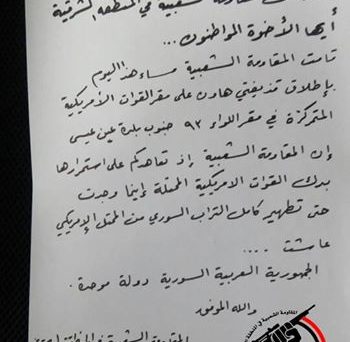 المقاومة الشعبية في المنطقة الشرقية
أيها الأخوة المواطنون ...
قامت المقاومة الشعبية مساء هذا اليوم
بإطلاق قذيفتي هاون على مقر القوات الأمريكية
المتمركزة في مقر اللواء ٩٣ جنوب بلدة عين عيسى
إن المقاومة الشعبية إذ تعاهدكم على استمرارها
بدك القوات الامريكية المحتلة إينما وجدت
حتى تطهير كامل التراب السوري من المحتل الإمريكي
عاشت ....
الجمهورية العربية السورية دولة موحدة .
والله الموفق
المقاومة الشعبية في